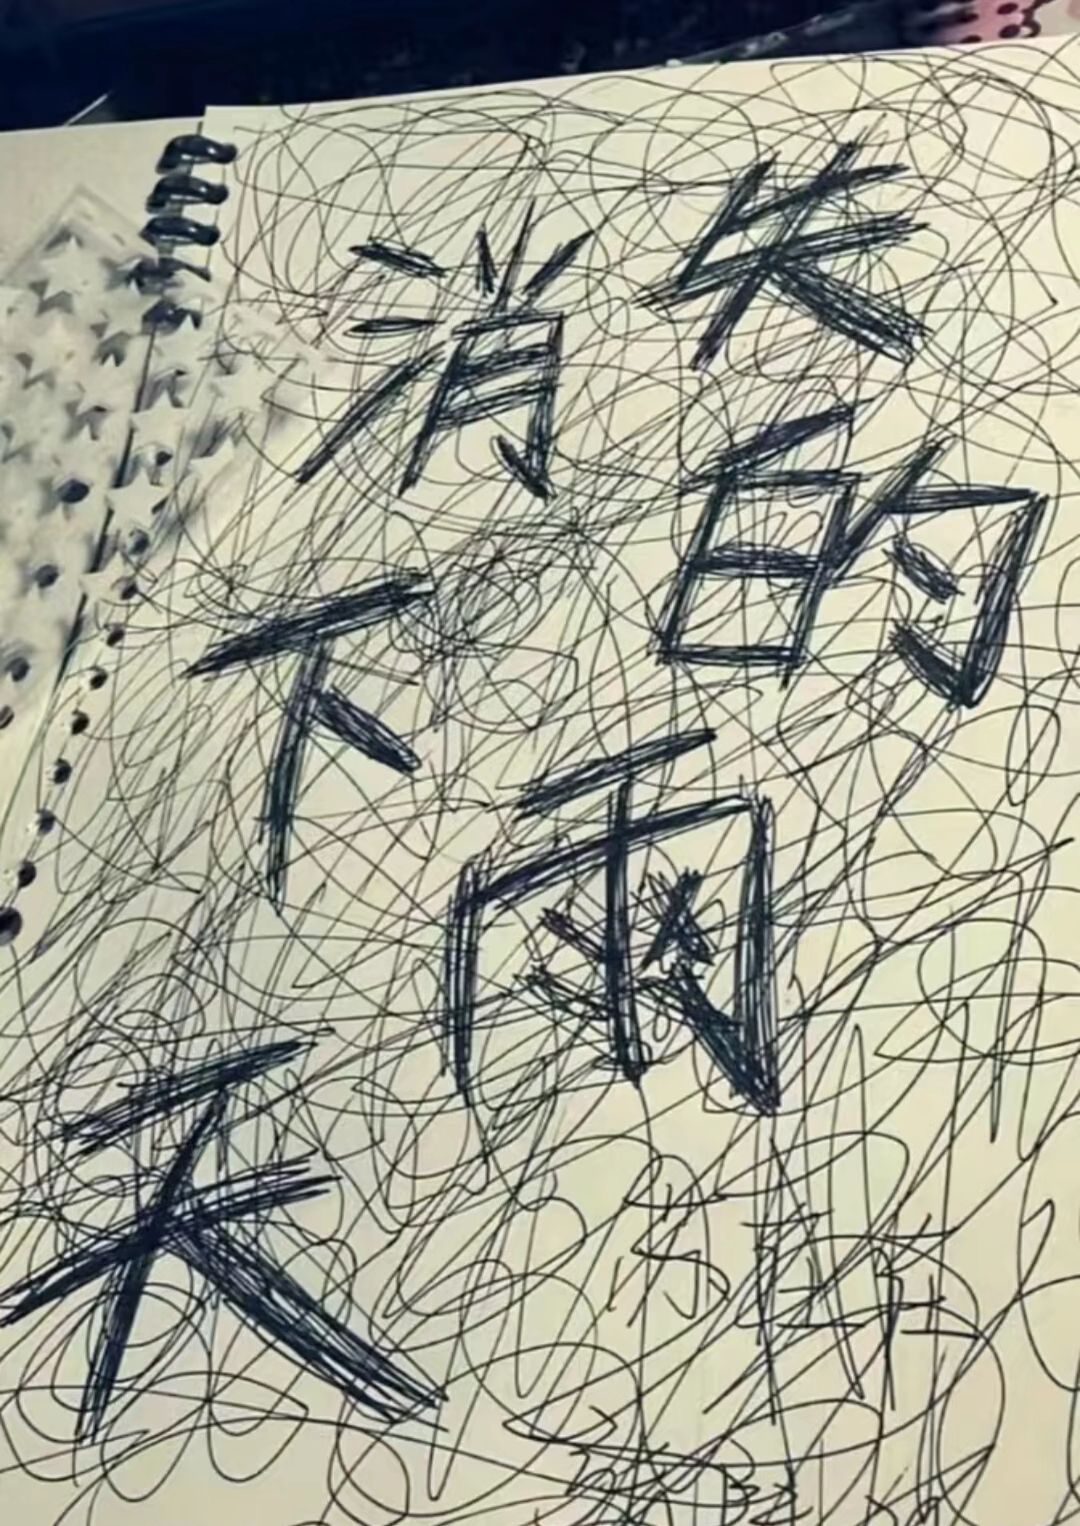 消失
的
下雨
天